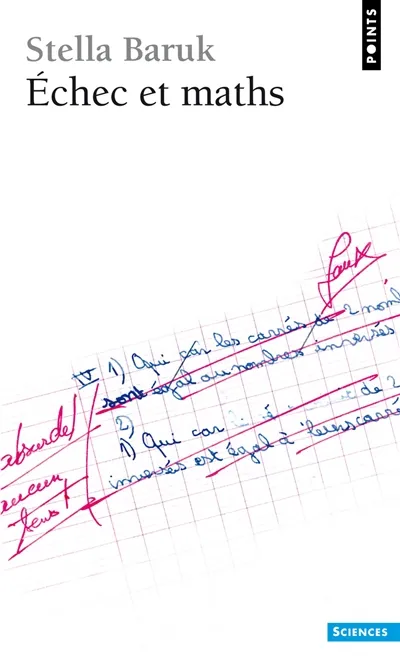 Stella Baruk
Échec et maths
POINTS
faux
IV 1) Qui car les carrés de 2 nom
sont égal au nombres inversés
absurde!
aucun
sens!
2)
1) Qui car de 2
inversés est égal à leurs carré
SCIENCES